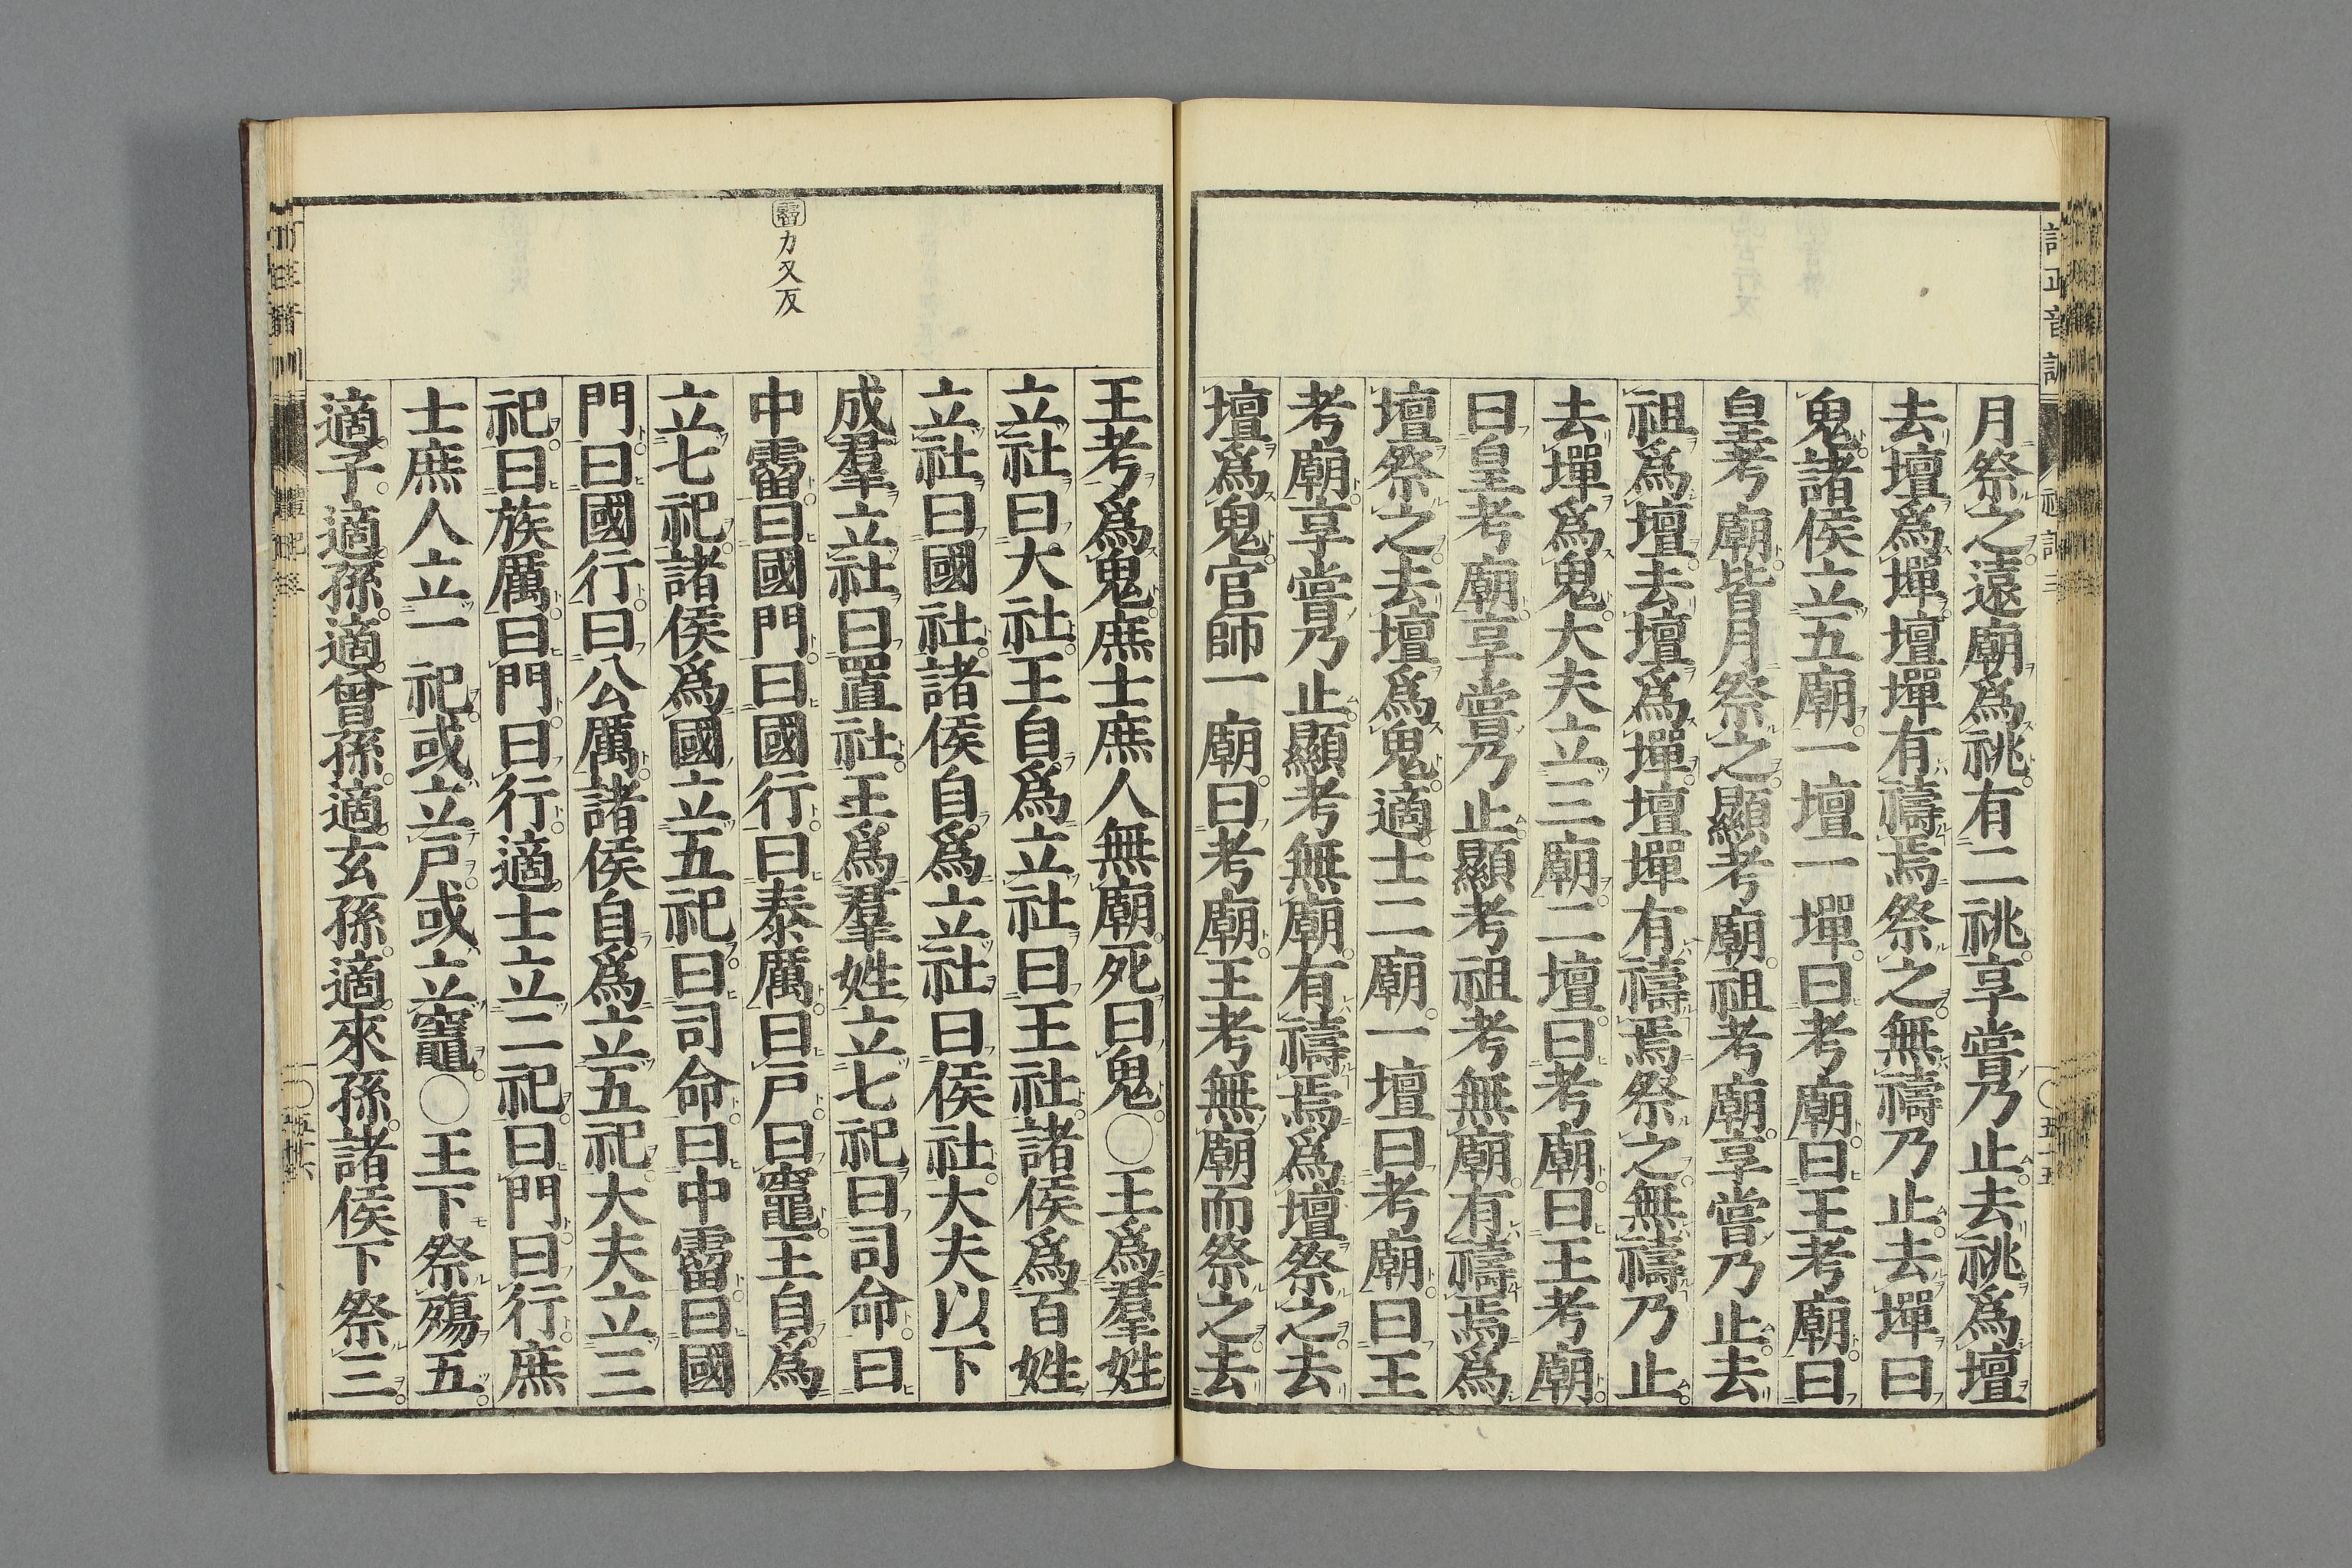 月祭之遠廟爲祧。有二祧。享嘗乃止。去祧爲壇
去壇爲墠。壇墠有禱焉祭之。無禱乃止。去墠曰
鬼。諸侯立五廟。一壇一墠。曰考廟。曰王考廟。曰
皇考廟。皆月祭之。顯考廟。祖考廟。享嘗乃止。去
祖爲壇。去壇爲墠。壇墠有禱焉祭之。無禱乃止。
去墠爲鬼。大夫立三廟。二壇。曰考廟。曰王考廟。
曰皇考廟。享嘗乃止。顯考祖考無廟。有禱焉爲
壇祭之。去壇爲鬼。適士二廟。一壇。曰考廟。曰王
考廟。享嘗乃止。顯考無廟。有禱焉爲壇祭之。去
壇爲鬼。官師一廟。曰考廟。王考無廟而祭之。去
王考爲鬼。庶士庶人無廟。死曰鬼。○王爲羣姓
立社曰大社。王自爲立社曰王社。諸侯爲百姓
立社曰國社。諸侯自爲立社曰侯社。大夫以下
成羣立社曰置社。王爲羣姓立七祀。曰司命。曰
霤力又反
中霤。曰國門。曰國行。曰泰厲。曰戸。曰竈。王自爲
立七祀。諸侯爲國立五祀。曰司命。曰中霤。曰國
門。曰國行。曰公厲。諸侯自爲立五祀。大夫立三
祀。曰族厲。曰門。曰行。適士立二祀。曰門。曰行。庶
士庶人立一祀。或立戸。或立竈。○王下祭殤五。
適子。適孫。適曾孫。適玄孫。適來孫。諸侯下祭三。